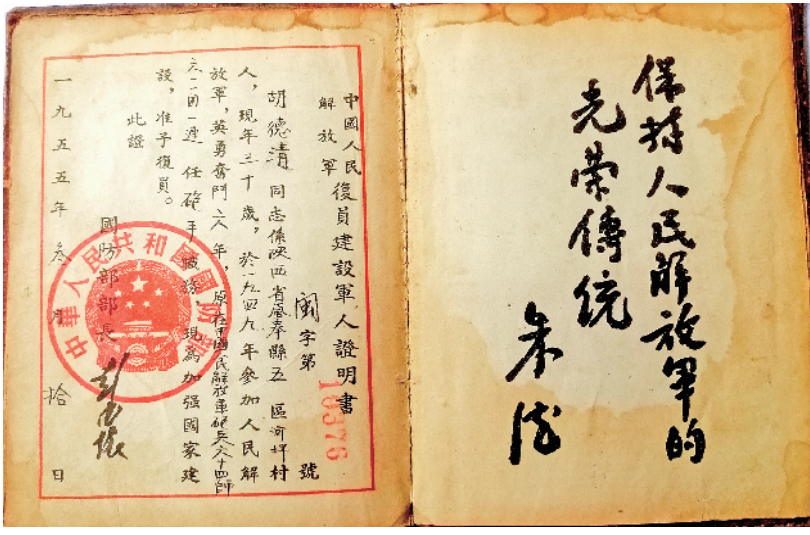 保持人民解放軍的
光榮傳統
朱德
中國人民
解放軍
復員建設軍人證明書
閩字第10376號
胡德清同志係陝西省奉縣五區河坪村
人，現年三十歲，於一九四九年參加人民解
放軍，英勇奮鬥六年，原在中國人民解放軍砲兵六十四師
一連任砲手職務，現為加强國家建
設，准予復員。
此證
國防部部長 彭德懷
一九五五年叁月拾日
中華人民共和國國防部